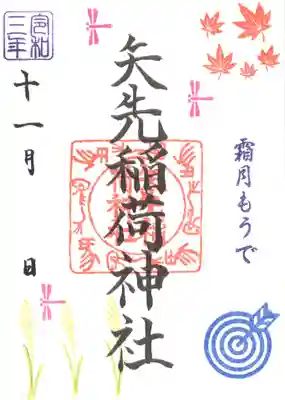 霜月もうで
矢先稲荷神社
令和三年
十一月 日